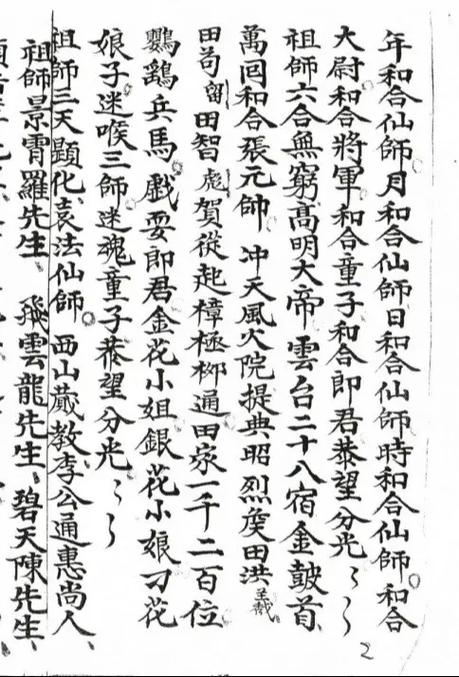 年和合仙師月和合仙師日和合仙師時和合仙師和合
大尉和合將軍和合童子和合郎君恭望分光〻〻
祖師六合無窮髙明大帝雲台二十八宿金皷首
萬囬和合張元帥 冲天風火院提典昭烈矦田洪
田苟留田智彪賀從起樟極栁通田家一千二百位
鸚鵡兵馬戲耍郎君金花小姐銀花小娘刁花
娘子迷喉三師迷魂童子恭望分光〻〻
祖師三天顯化袁法仙師西山蔵教李公通惠尚人
祖師景霄羅先生、飛雲龍先生、碧天陳先生、
2